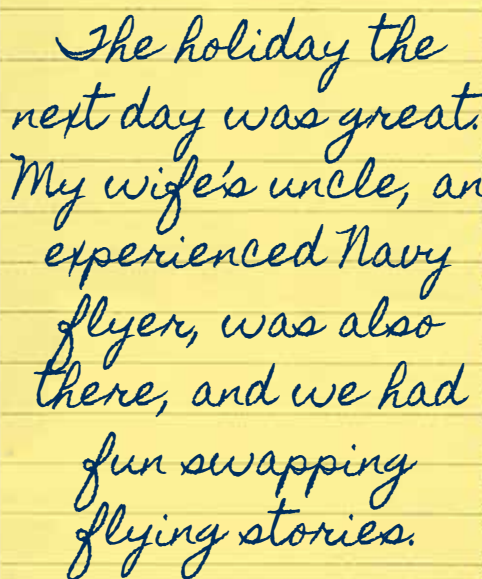 The holiday the
next day was great.
My wife's uncle, an
experienced Navy
flyer, was also
there, and we had
fun swapping
flying stories.